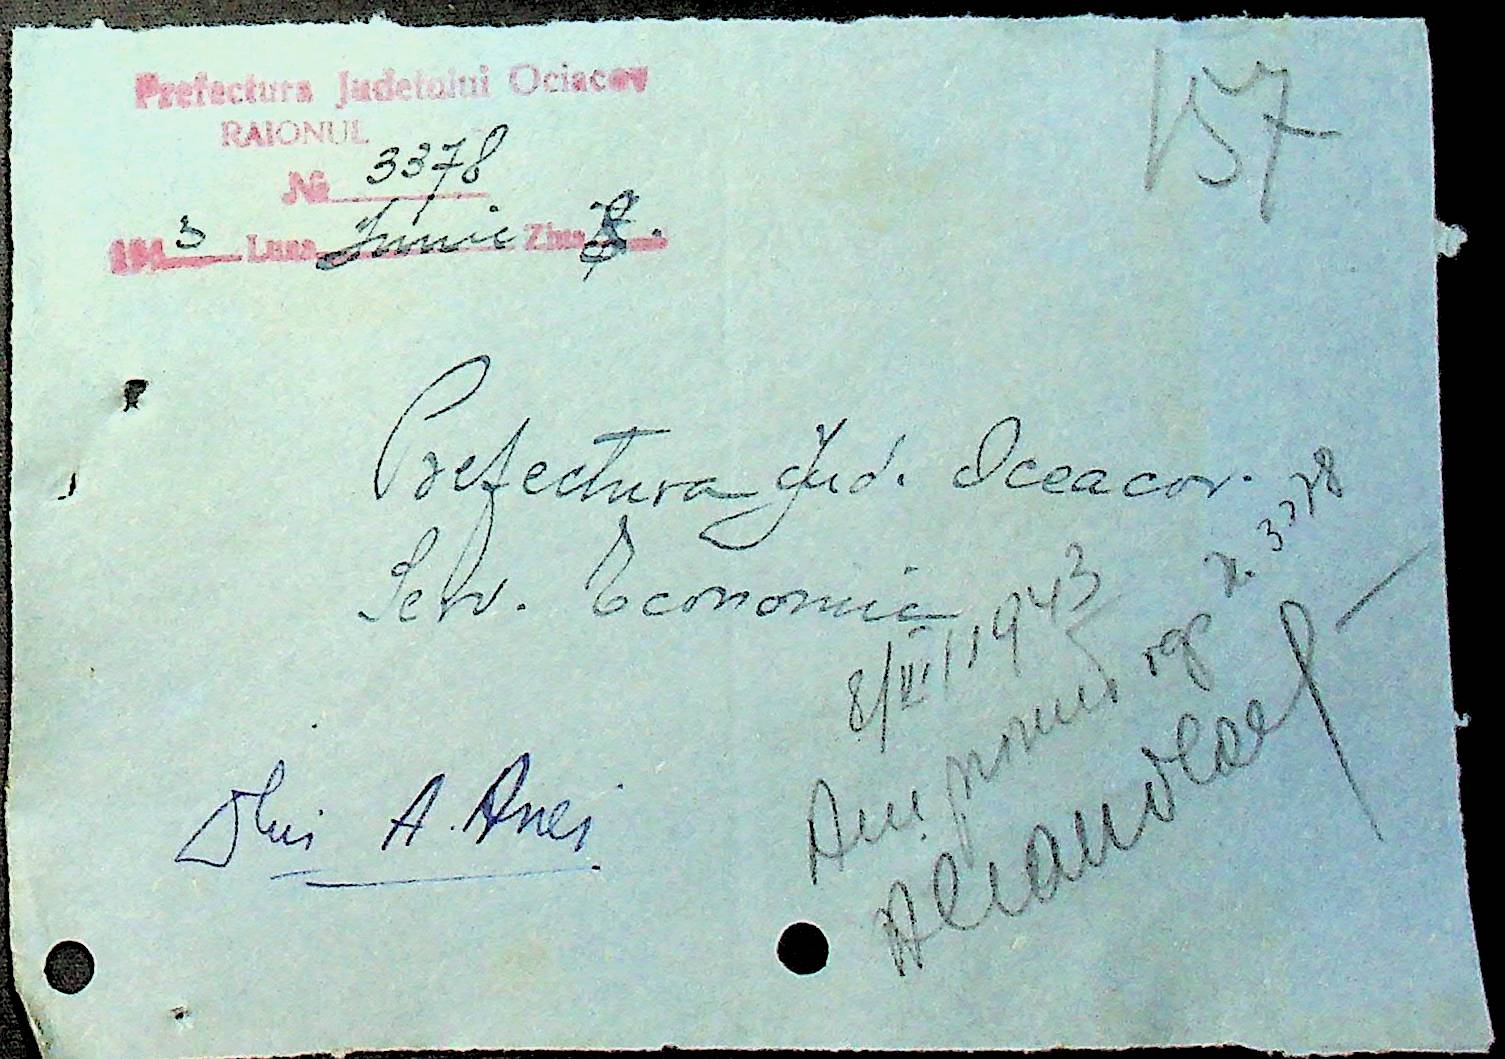 Prefectura Judetului Ociacov
157
RAIONUL
№ 3378
1943 Luna Iunie Ziua 8.
Prefectura Jud. Oceacov.
Serv. Economic
8/VI/1943
Am primit reg N. 3378
A. Anei